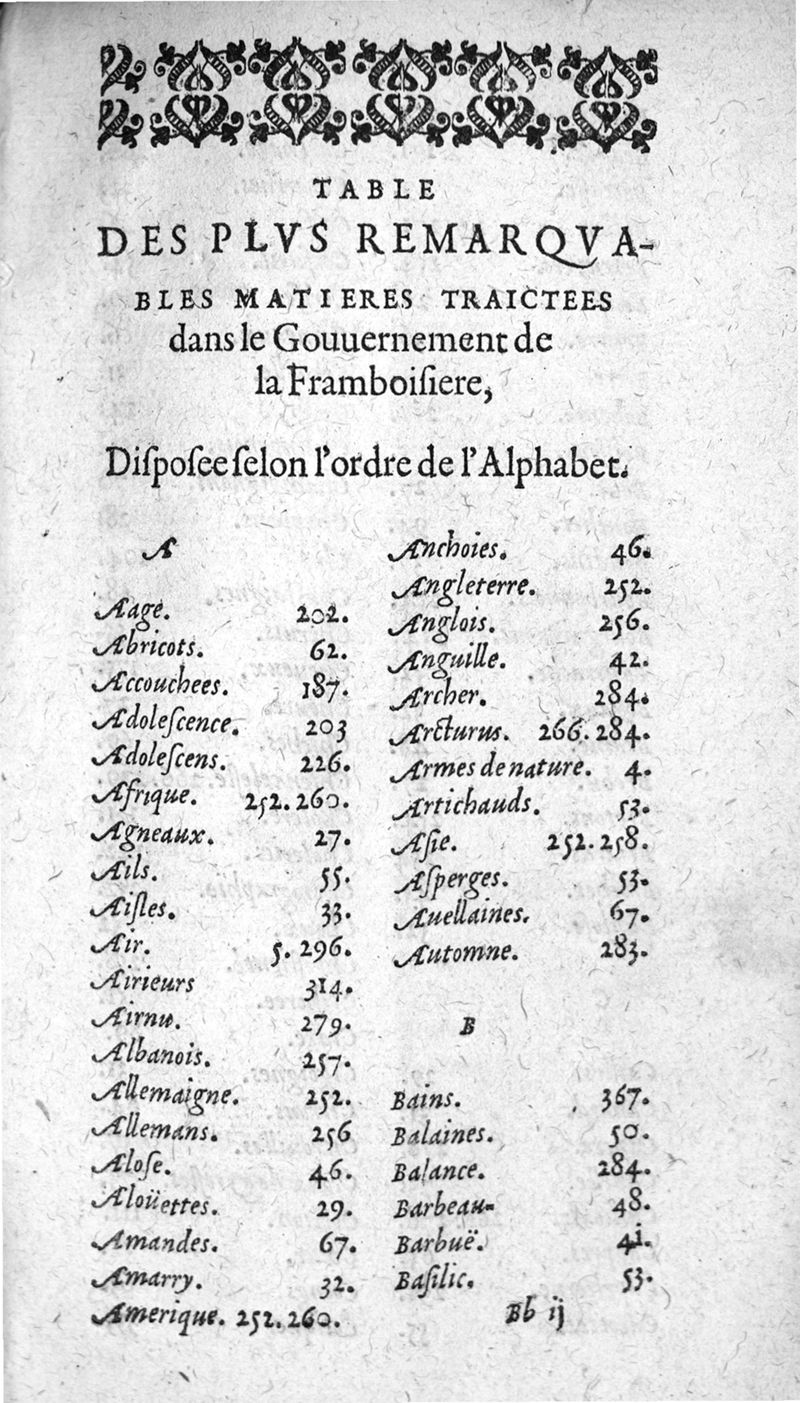 TABLE
DES PLVS REMARQVA-
BLES MATIERES TRAICTEES
dans le Gouuernement de
la Framboiſiere,
Diſpoſee ſelon l'ordre de l'Alphabet.
A
Aage. 202.
Abricots. 62.
Accouchees. 187.
Adoleſcence. 203
Adoleſcens. 226.
Afrique. 252. 260.
Agneaux. 27.
Ails. 55.
Aiſles. 33.
Air. 5. 296.
Airieurs 314.
Airnu. 279.
Albanois. 257.
Allemaigne. 252.
Allemans. 256
Aloſe. 46.
Aloüettes. 29.
Amandes. 67.
Amarry. 32.
Amerique. 252. 260.
Anchoies. 46.
Angleterre. 252.
Anglois. 256.
Anguille. 42.
Archer. 284.
Arcturus. 266. 284.
Armes de nature. 4.
Artichauds. 53.
Aſie. 252. 258.
Aſperges. 53.
Auellaines. 67.
Automne. 283.
B
Bains. 367.
Balaines. 50.
Balance. 284.
Barbeau- 48.
Barbuë. 41.
Baſilic. 53.
Bb ij